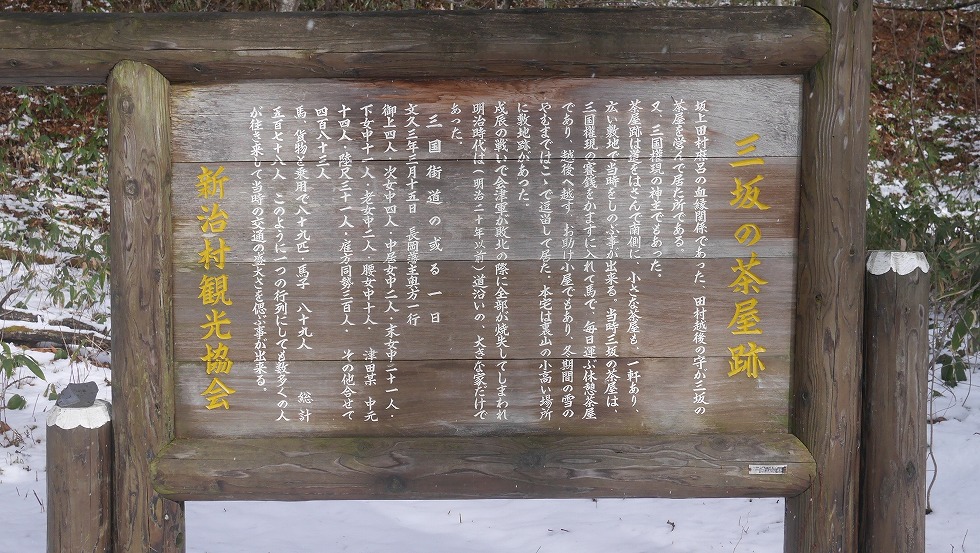 三坂の茶屋跡
坂上田村麻呂の血縁関係であった、田村越後の守が三坂の
茶屋を営んで居た所である。
又、三国権現の神主でもあった。
茶屋跡は道をはさんで南側に、小さな茶屋も、一軒あり、
広い敷地で当時をしのぶ事が出来る。当時三坂の茶屋は、
三国権現の賽銭をかますに入れて馬で、毎日運ぶ休憩茶屋
であり、越後へ越す、お助け小屋でもあり、冬期間の雪の
やむまではここで逗留して居た。本宅は裏山の小高い場所
に敷地跡があった。
戊辰の戦いで会津軍が敗北の際に全部が焼失してしまわれ
明治時代は(明治二十年以前)道沿いの、大きな家だけで
あった。
三国街道の或る一日
文久三年三月十五日 長岡藩主奥方一行
御上四人・次女中四人・中居女中二人・末女中二十一人・
下女中十一人・老女中二人・腰女中十人・ 津田某 中元
十四人・陸尺三十二人・雇方同勢三百人・ その他合せて
四百八十三人
馬、貨物と乗用で八十九匹・馬子 八十九人 総計
五百七十八人 このように一つの行列にしても数多くの人
が往き来して当時の交通の盛大さを偲ぶ事が出来る。
新治村観光協会